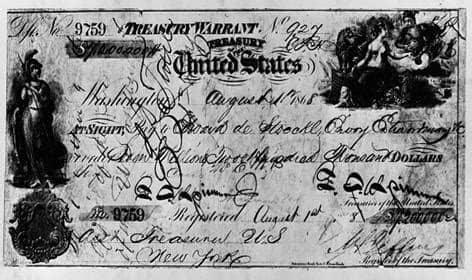 Dft. No. 9759 TREASURY WARRANT. No. 927
$7,200,000
TREASURY
OF THE
United States,
Washington, August 1st 1868
AT SIGHT, Pay to Edward de Stoeckl, Envoy Extraordinary &c
Seven Millions Two Hundred Thousand DOLLARS
F. E. Spinner
F. E. Spinner
Treasurer of the United States.
No. 9759 Registered August 1st $7,200,000
Asst Treasurer U.S.
New York
Register of the Treasury.